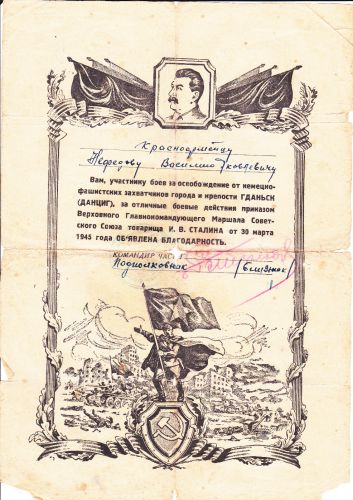 Красноармейцу
Нефедову Василию Яковлевичу
Вам, участнику боев за освобождение от немецко-
фашистских захватчиков города и крепости ГДАНЬСК
(ДАНЦИГ), за отличные боевые действия приказом
Верховного Главнокомандующего Маршала Совет-
ского Союза товарища И. В. СТАЛИНА от 30 марта
1945 года ОБ'ЯВЛЕНА БЛАГОДАРНОСТЬ.
КОМАНДИР ЧАСТИ
Подполковник